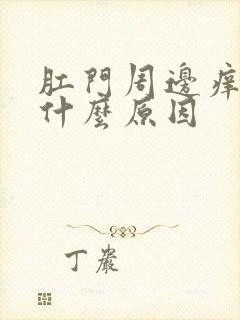 肛門周邊痒
什麼原因
丁嚴